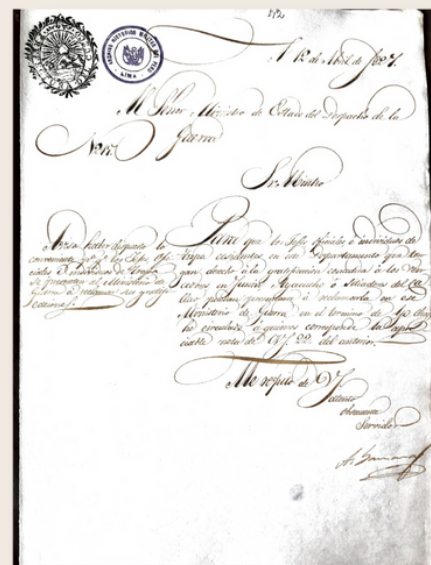 182
ARCHIVO HISTORICO MILITAR DEL PERU
LIMA
A 12 de Abril de 1827.
Al Señor Ministro de Estado del Despacho de la
Guerra
Nº 15.
Sr. Ministro
Avisa haber dispuesto lo
conveniente pª q.e los Jefes ofi-
ciales é individuos de tropa
se presenten al Ministerio de
Guerra à reclamar sus gratifi-
caciones.
Para que los Jefes oficiales é individuos de
tropa residentes en este Departamento que ten-
gan derecho à la gratificacion concedida à los Ven-
cedores en Junin, Ayacucho ó Sitiadores del Ca-
llao puedan presentarse à reclamarla en ese
Ministerio de Guerra en el termino de
he circulado à quienes corresponde la apre-
ciable nota de VS. 22. del anterior.
Me repito de VS.
atento
obsecuente
Servidor